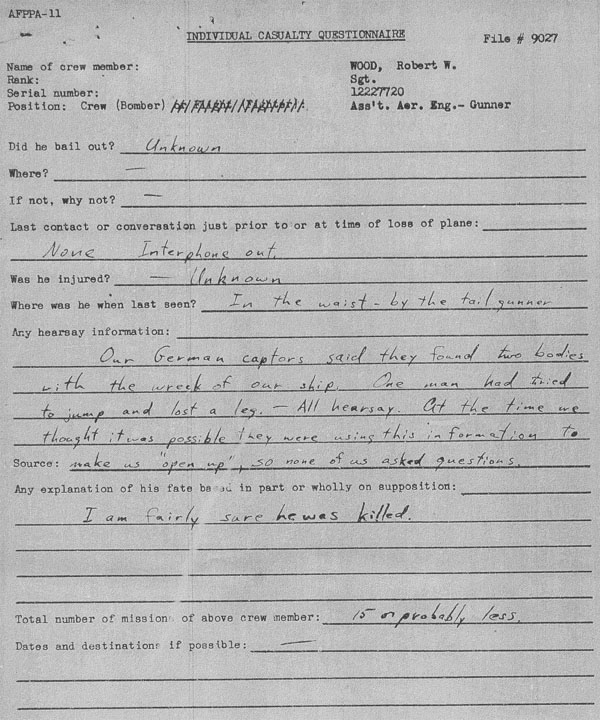 AFPPA-11
INDIVIDUAL CASUALTY QUESTIONNAIRE
File # 9027
Name of crew member: WOOD, Robert W.
Rank: Sgt.
Serial number: 12227720
Position: Crew (Bomber) Ass't. Aer. Eng.- Gunner
Did he bail out? Unknown
Where? —
If not, why not? —
Last contact or conversation just prior to or at time of loss of plane:
None Interphone out.
Was he injured? — Unknown
Where was he when last seen? In the waist - by the tail gunner
Any hearsay information:
Our German captors said they found two bodies
with the wreck of our ship. One man had tried
to jump and lost a leg. — All hearsay. At the time we
thought it was possible they were using this information to
Source: make us "open up", so none of us asked questions.
Any explanation of his fate based in part or wholly on supposition:
I am fairly sure he was killed.
Total number of missions of above crew member: 15 or probably less.
Dates and destinations if possible: —